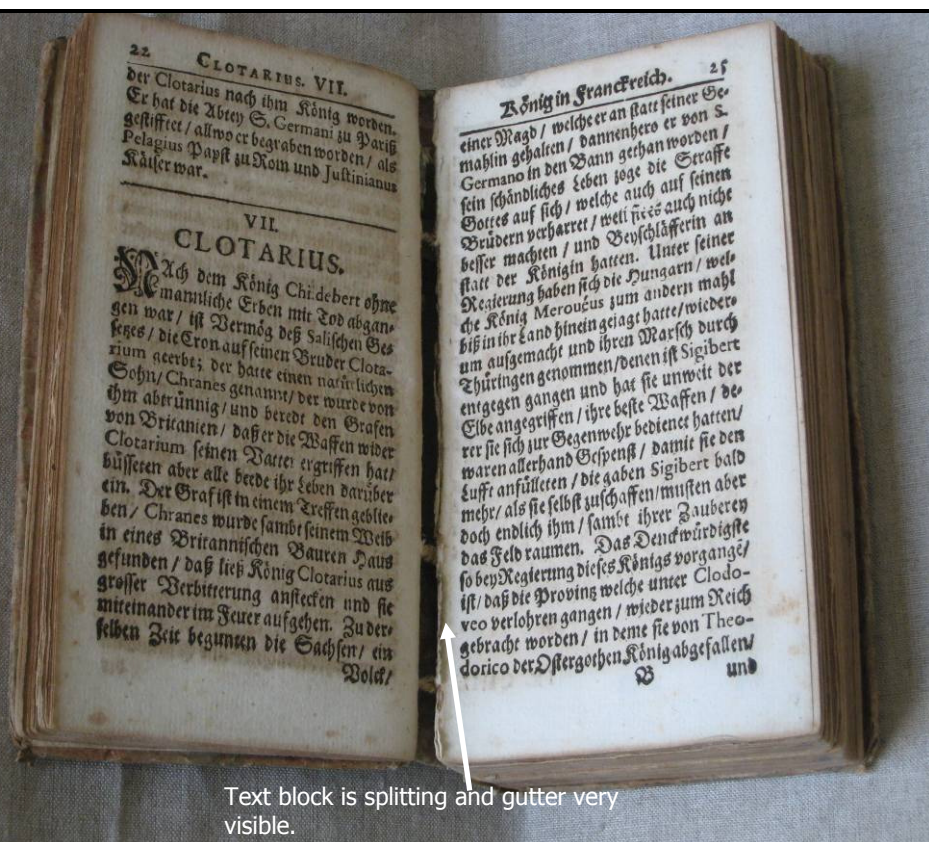 22 CLOTARIUS. VII.
der Clotarius nach ihm König worden.
Er hat die Abtey S. Germani zu Pariß
gestifftet / allwo er begraben worden / als
Pelagius Papst zu Rom und Justinianus
Käiser war.
VII.
CLOTARIUS.
NAch dem König Childebert ohne
mannliche Erben mit Tod abgan-
gen war / ist Vermög deß Salischen Ge-
setzes / die Cron auf seinen Bruder Clota-
rium geerbt; der hatte einen natürlichen
Sohn / Chranes genannt / der wurde von
ihm abtrünnig / und beredt den Grafen
von Britanien / daß er die Waffen wider
Clotarium seinen Vatter ergriffen hat /
büsseten aber alle beede ihr Leben darüber
ein. Der Graf ist in einem Treffen geblie-
ben / Chranes wurde sambt seinem Weib
in eines Britannischen Bauren Haus
gefunden / daß ließ König Clotarius aus
grosser Verbitterung anstecken und sie
miteinander im Feuer aufgehen. Zu der-
selben Zeit begunten die Sachsen / ein
Volck /
König in Franckreich. 25
einer Magd / welche er an statt seiner Ge-
mahlin gehalten / dannenhero er von S.
Germano in den Bann gethan worden /
sein schändliches Leben zoge die Straffe
Gottes auf sich / welche auch auf seinen
Brüdern verharret / weil auch nicht
besser machten / und Beyschläfferin an
statt der Königin hatten. Unter seiner
Regierung haben sich die Hungarn / wel-
che König Meroucus zum andern mahl
biß in ihr Land hinein gejagt hatte / wieder-
um aufgemacht und ihren Marsch durch
Thüringen genommen / denen ist Sigibert
entgegen gangen und hat sie unweit der
Elbe angegriffen / ihre beste Waffen / de-
rer sie sich zur Gegenwehr bedienet hatten /
waren allerhand Gespenst / damit sie den
Lufft anfülleten / die gaben Sigibert bald
mehr / als sie selbst zuschaffen / musten aber
doch endlich ihm / sambt ihrer Zauberey
das Feld raumen. Das Denckwürdigste
so bey Regierung dieses Königs vorgangē /
ist / daß die Provintz welche unter Clodo-
veo verlohren gangen / wieder zum Reich
gebracht worden / in deme sie von Theo-
dorico der Ostergothen König abgefallen /
B und
Text block is splitting and gutter very
visible.